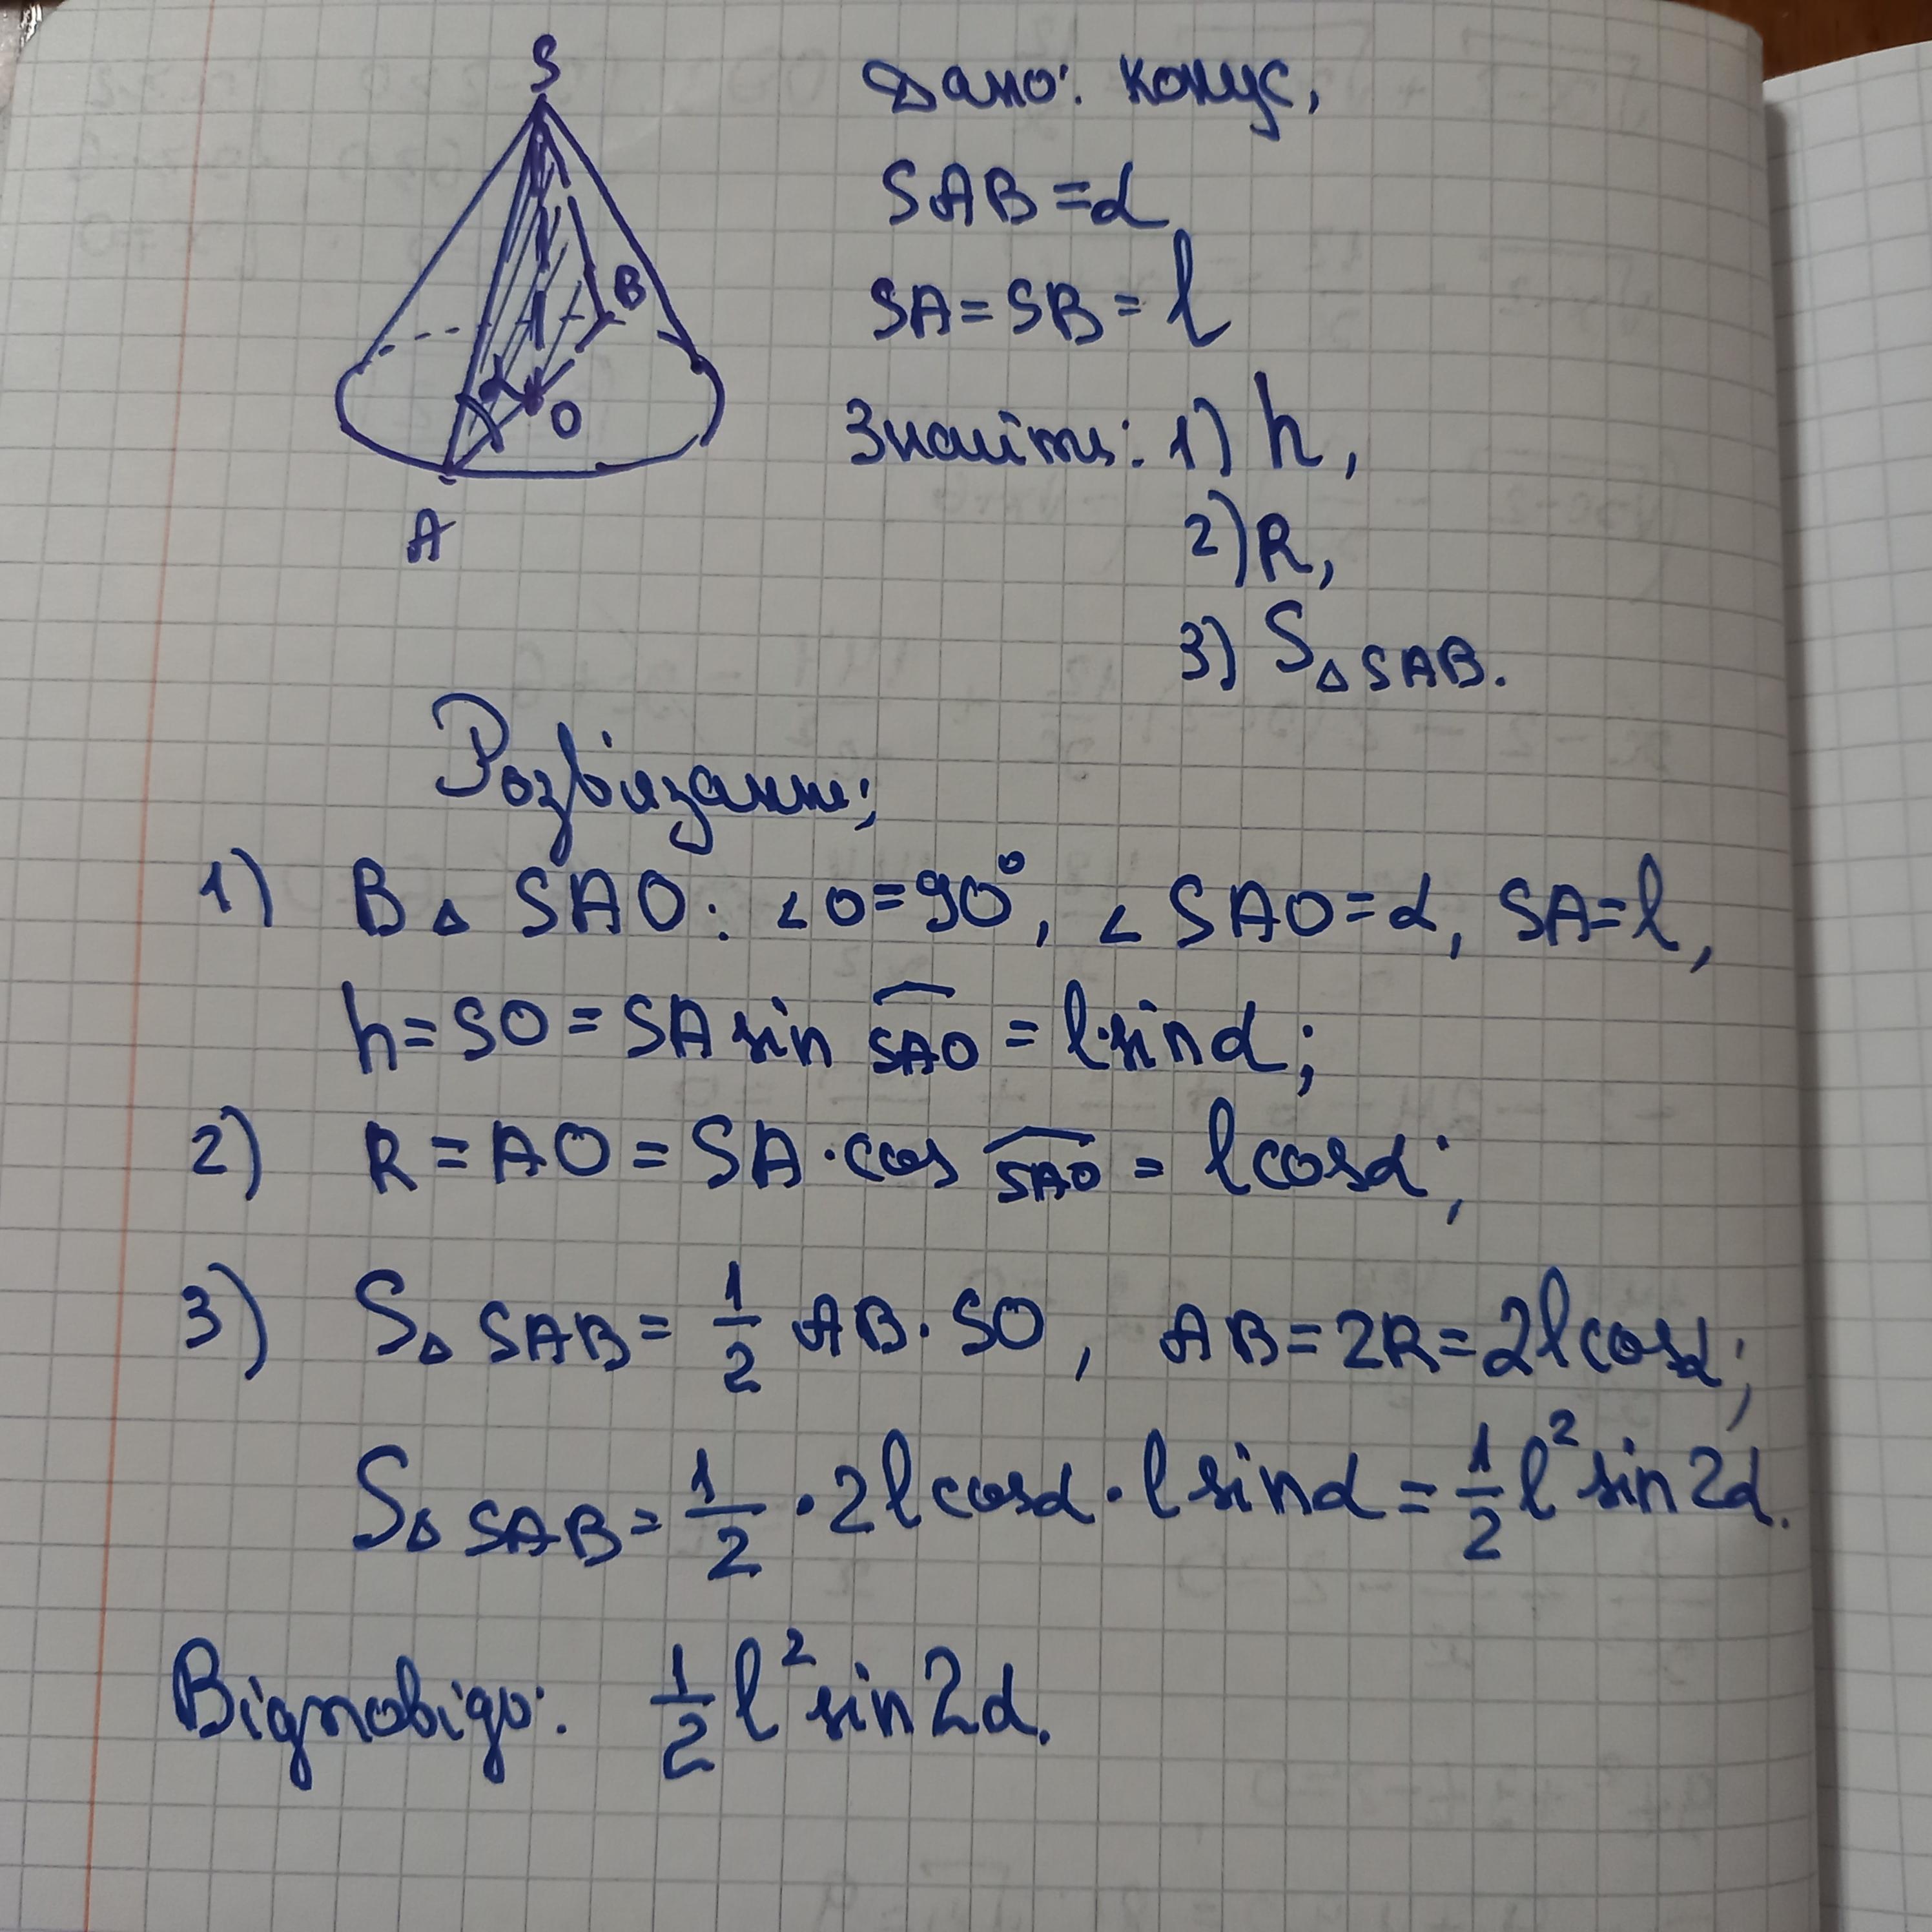 S
B
O
A
α
Дано: конус,
SAB = α
SA = SB = l
Знайти: 1) h,
2) R,
3) S△SAB.
Розвізання;
1) В △ SAO: ∠O = 90°, ∠SAO = α, SA = l,
h = SO = SA sin SAO = l·sin α;
2) R = AO = SA · cos SAO = l cos α;
3) S△SAB = 1/2 AB · SO, AB = 2R = 2l cos α;
S△SAB = 1/2 · 2l cos α · l sin α = 1/2 l² sin 2α.
Відповідь: 1/2 l² sin 2α.